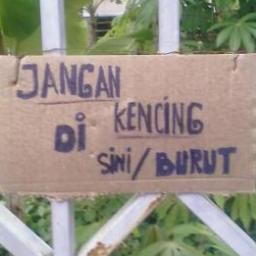 JANGAN
DI KENCING
SINI/BURUT